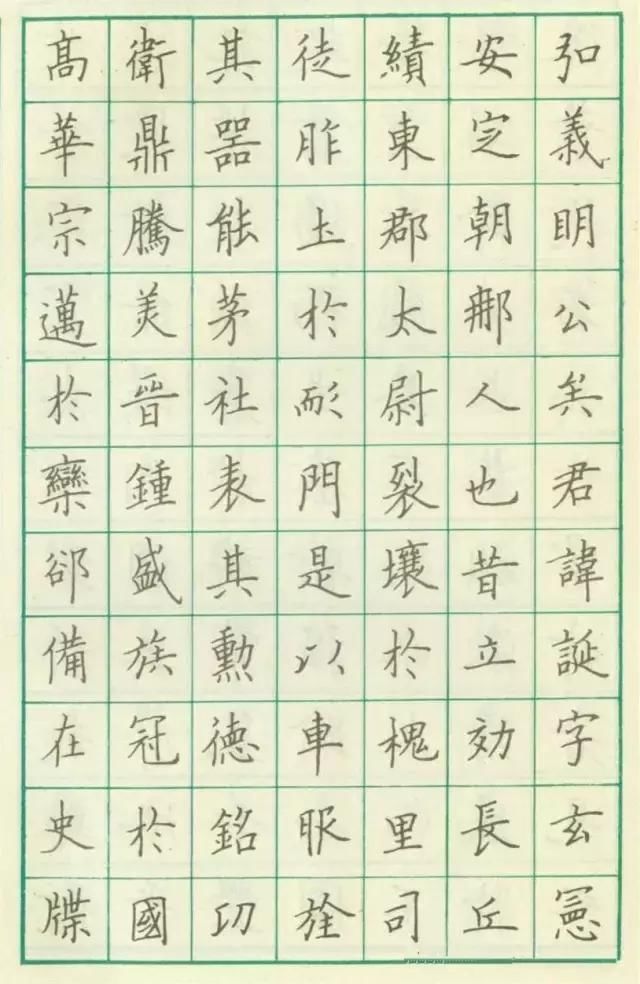 弘義明公矣君諱誕字玄憲
安定朝那人也昔立効長丘
績東郡太尉裂壤於槐里司
徒胙土於耏門是以車服旌
其器能茅社表其勲德銘功
衛鼎騰美晉鍾盛族冠於國
高華宗邁於欒郤備在史牒